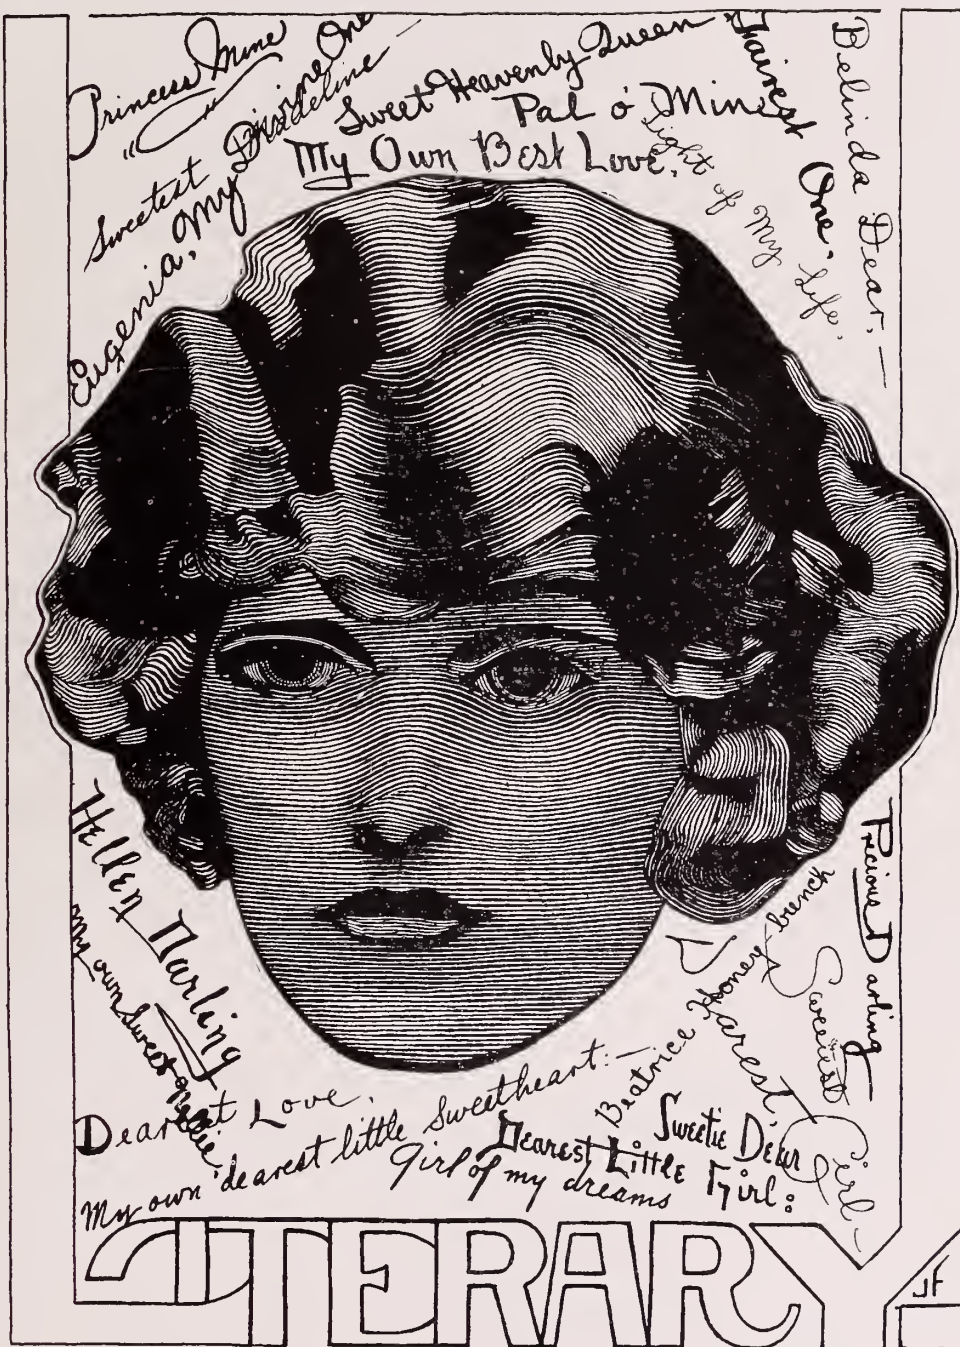 Princess Mine
Sweetest Madeline—
Eugenia, My Divine One
Sweet Heavenly Queen
Pal o' Mine
My Own Best Love,
Fairest One,
Light of My Life,
Belinda Dear,—
Hellen Darling
My own Sweet Nellie
Dearest Love,
My own dearest little Sweetheart:—
Girl of my dreams
Dearest Little Girl:
Sweetie Dear
Beatrice Honey-bunch
Dearest,
Sweetest Girl—
Precious Darling—
LITERARY
JF